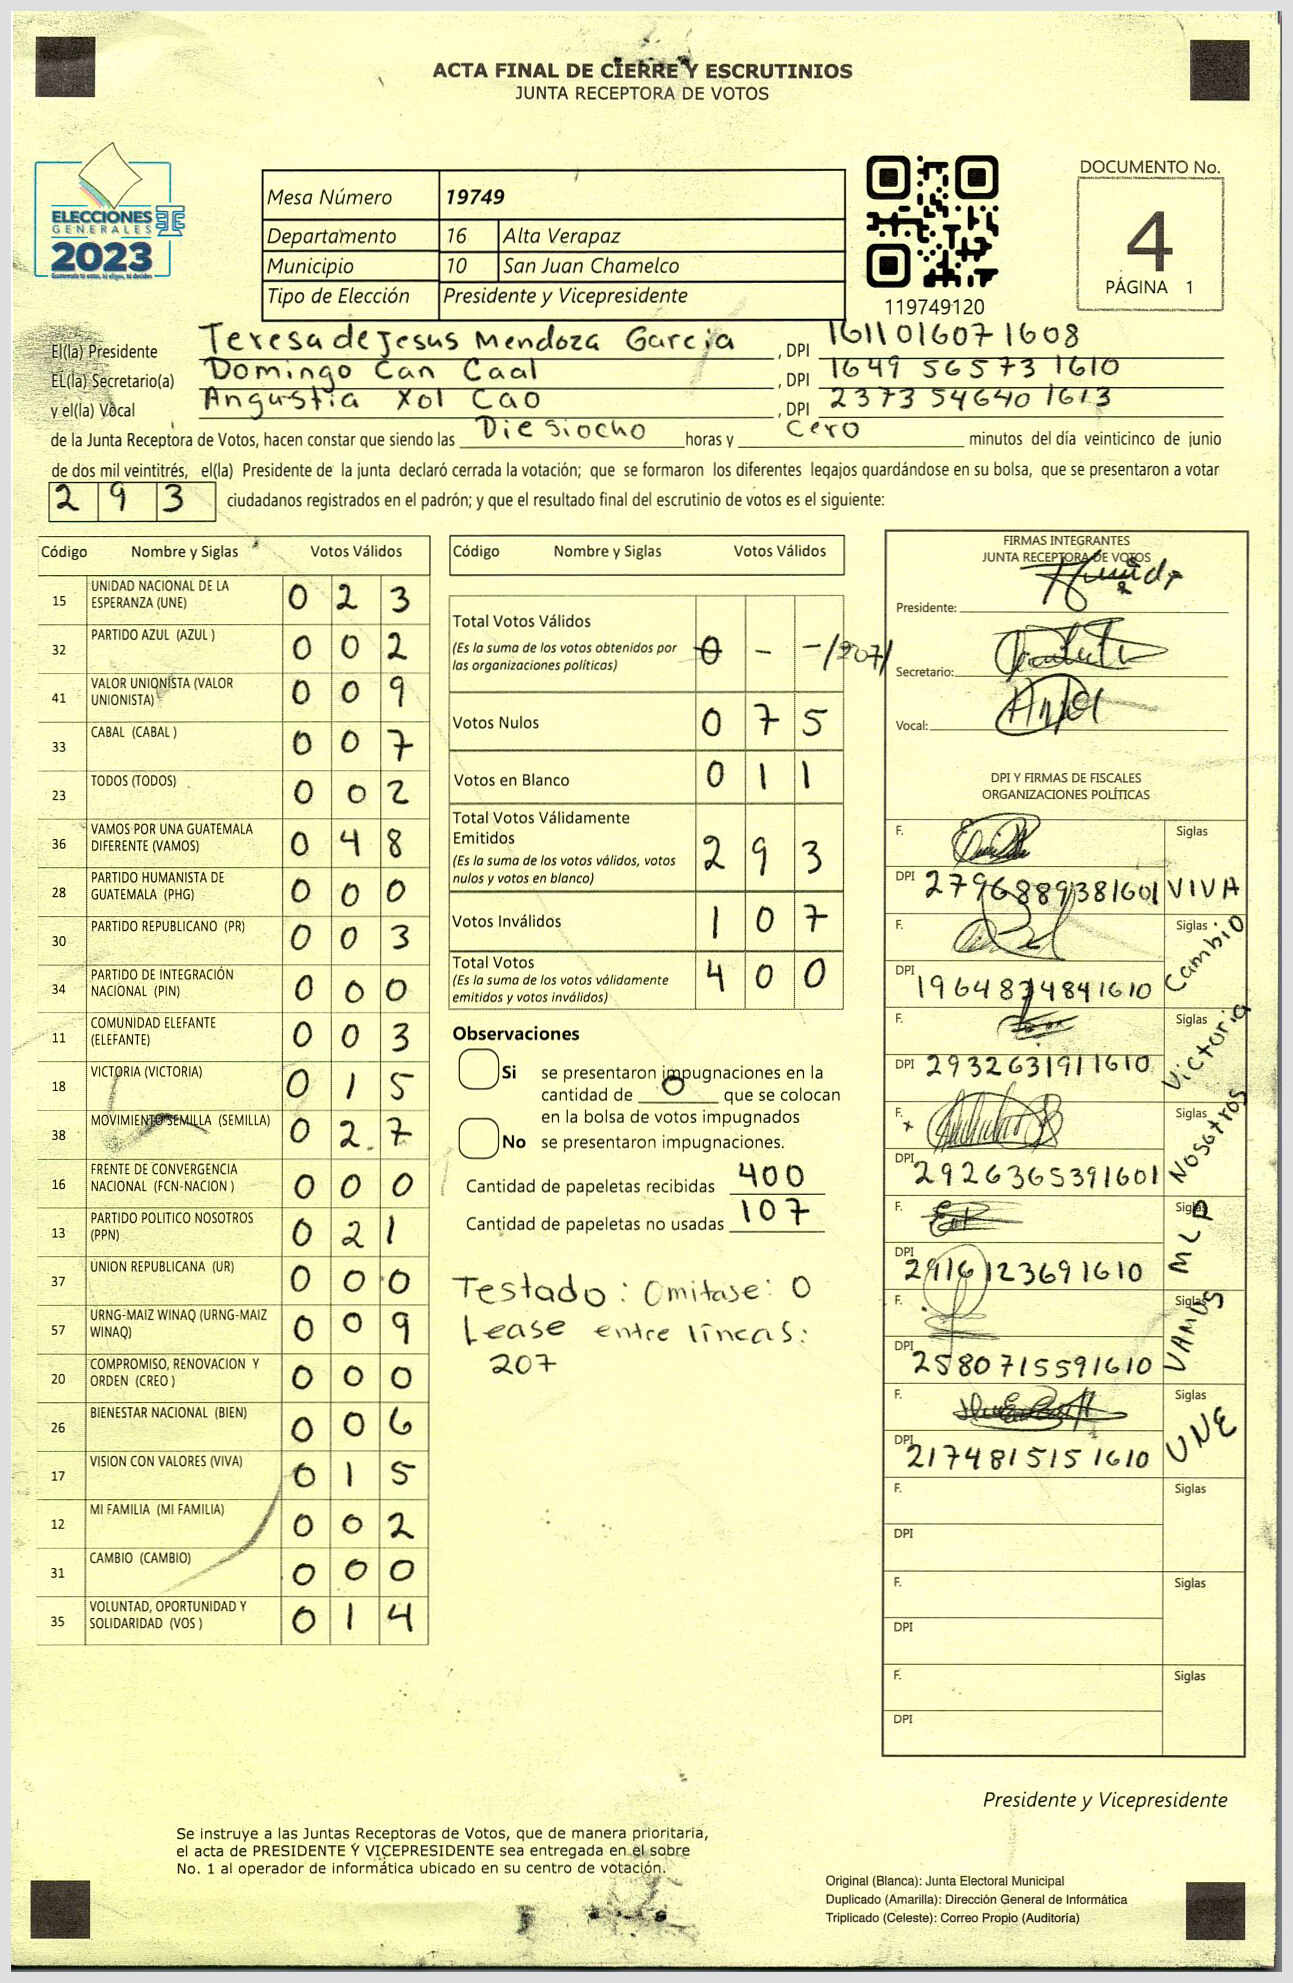 ACTA FINAL DE CIERRE Y ESCRUTINIOS
JUNTA RECEPTORA DE VOTOS
ELECCIONES
GENERALES
2023
Mesa Número 19749
Departamento 16 Alta Verapaz
Municipio 10 San Juan Chamelco
Tipo de Elección Presidente y Vicepresidente
119749120
DOCUMENTO No.
4
PÁGINA 1
El(la) Presidente Teresa de Jesus Mendoza Garcia , DPI 1611016071608
EL(la) Secretario(a) Domingo Can Caal , DPI 1649 56573 1610
y el(la) Vocal Angustia Xol Cao , DPI 2373 54640 1613
de la Junta Receptora de Votos, hacen constar que siendo las Diesiocho horas y cero minutos del día veinticinco de junio
de dos mil veintitrés, el(la) Presidente de la junta declaró cerrada la votación; que se formaron los diferentes legajos guardándose en su bolsa, que se presentaron a votar
293 ciudadanos registrados en el padrón; y que el resultado final del escrutinio de votos es el siguiente:
Código Nombre y Siglas Votos Válidos
15 UNIDAD NACIONAL DE LA ESPERANZA (UNE) 0 2 3
32 PARTIDO AZUL (AZUL ) 0 0 2
41 VALOR UNIONISTA (VALOR UNIONISTA) 0 0 9
33 CABAL (CABAL ) 0 0 7
23 TODOS (TODOS) 0 0 2
36 VAMOS POR UNA GUATEMALA DIFERENTE (VAMOS) 0 4 8
28 PARTIDO HUMANISTA DE GUATEMALA (PHG) 0 0 0
30 PARTIDO REPUBLICANO (PR) 0 0 3
34 PARTIDO DE INTEGRACIÓN NACIONAL (PIN) 0 0 0
11 COMUNIDAD ELEFANTE (ELEFANTE) 0 0 3
18 VICTORIA (VICTORIA) 0 1 5
38 MOVIMIENTO SEMILLA (SEMILLA) 0 2 7
16 FRENTE DE CONVERGENCIA NACIONAL (FCN-NACION ) 0 0 0
13 PARTIDO POLITICO NOSOTROS (PPN) 0 2 1
37 UNION REPUBLICANA (UR) 0 0 0
57 URNG-MAIZ WINAQ (URNG-MAIZ WINAQ) 0 0 9
20 COMPROMISO, RENOVACION Y ORDEN (CREO ) 0 0 0
26 BIENESTAR NACIONAL (BIEN) 0 0 6
17 VISION CON VALORES (VIVA) 0 1 5
12 MI FAMILIA (MI FAMILIA) 0 0 2
31 CAMBIO (CAMBIO) 0 0 0
35 VOLUNTAD, OPORTUNIDAD Y SOLIDARIDAD (VOS ) 0 1 4
Código Nombre y Siglas Votos Válidos
Total Votos Válidos
(Es la suma de los votos obtenidos por las organizaciones políticas) 0 - -/207/
Votos Nulos 0 7 5
Votos en Blanco 0 1 1
Total Votos Válidamente Emitidos
(Es la suma de los votos válidos, votos nulos y votos en blanco) 2 9 3
Votos Inválidos 1 0 7
Total Votos
(Es la suma de los votos válidamente emitidos y votos inválidos) 4 0 0
Observaciones
Si se presentaron impugnaciones en la
cantidad de 0 que se colocan
en la bolsa de votos impugnados
No se presentaron impugnaciones.
Cantidad de papeletas recibidas 400
Cantidad de papeletas no usadas 107
Testado: Omitase: 0
Lease entre líneas:
207
FIRMAS INTEGRANTES
JUNTA RECEPTORA DE VOTOS
Presidente:
Secretario:
Vocal:
DPI Y FIRMAS DE FISCALES
ORGANIZACIONES POLÍTICAS
F. Siglas
DPI 2796889381601 VIVA
F. Siglas
DPI 1964834841610 Cambio
F. Siglas
DPI 2932631911610 Victoria
F. Siglas
DPI 2926365391601 Nosotros
F. Siglas
DPI 2916123691610 MLP
F. Siglas
DPI 2580715591610 VAMOS
F. Siglas
DPI 2174815151610 UNE
F. Siglas
DPI
F. Siglas
DPI
F. Siglas
DPI
Presidente y Vicepresidente
Se instruye a las Juntas Receptoras de Votos, que de manera prioritaria,
el acta de PRESIDENTE Y VICEPRESIDENTE sea entregada en el sobre
No. 1 al operador de informática ubicado en su centro de votación.
Original (Blanca): Junta Electoral Municipal
Duplicado (Amarilla): Dirección General de Informática
Triplicado (Celeste): Correo Propio (Auditoría)